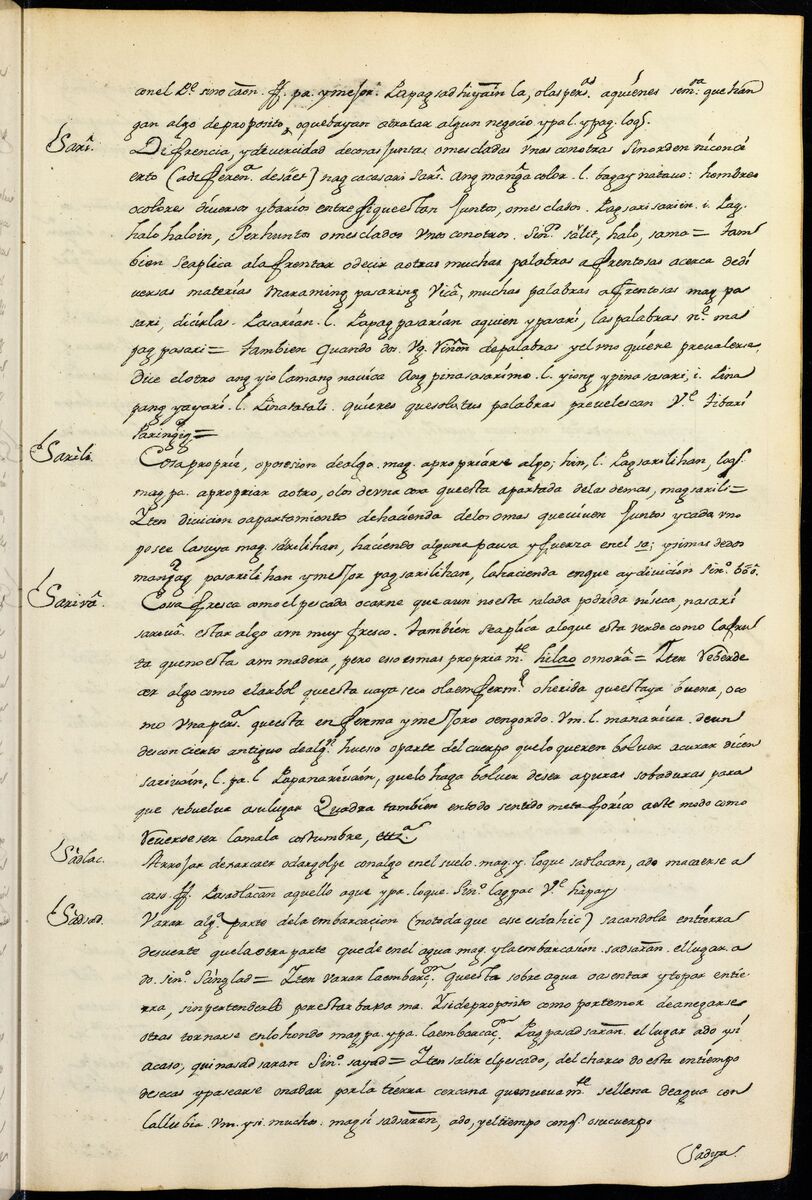 conel D.e sino caōn. ff. pa. y mejor. Papagsadhiyāin la, olas pers.as aquienes sem.ra que han
gan algo de proposito, o que bayan atratar algun negocio ypal. ypag. logs.
Sari. Deferencia, y divercidad de cosas juntas o mescladas unas con otras sin orden ni conci
erto (adeferen.a desães) nag cacasari sari. ang manḡa color. l. bagay natauo: hombres
o colores diversos y barios entre si que estan juntos, omesclados. Pagsarisariin. i. Pag
halo haloin, Perhuntos o mesclados unos con otros. Sin.o salit, halo, sama = tam
bien se aplica ala frentar o decir a otras muchas palabras afrentosas acerca de di
versas materias maraming pasaring vicā, muchas palabras afrentosas mag pa
sari, dicirlas. Pasarian. l. Papag pasarian a quien y pasari, las palabras n.e mas
pag pasari = tambien quando dos. Vg. riñen de palabras y el uno quiere prevalerse,
Dice el otro ang yio lamang na vica ang pinasasarimo. l. yiong ypina sasari, i. Pina
pang yayari. l. Pinatatali. quieres que solo tus palabras prevalescan V.e tibari
Paringig =
Sarili. Cosa propria, o posesion de algo. mag. apropriarse algo; hin, l. Pagsarilihan, logs.
mag pa. apropriar a otro, o los de una cosa que esta apartada de las demas, magsarili =
Yten divicion o apartamiento de hacienda de los o mas que viven juntos y cada uno
poser la suya mag. sarilihan, haciendo alguna pausa y fuerza en el sa; y si mas de dos
manḡag pasarilihan y mejor pag sarilihan, la hacienda en que ay division Sin.o bōō.
Sarivā. Cosa fresca como el pescado o carne que aun no esta salada podrida ni seca, nasari
sarivā. estar algo aun muy fresco. tambien se aplica a lo que esta verde como la fru
ta que no esta aun madera, pero eso es mas propria m.te hilao o morā = Yten reberde
cer algo como el arbol que esta vaya seco o la enferm.d o herida que esta ya buena, o co
mo una pers.a que esta enferma y mejoro o engordo. Vm. l. manariva. de un
desconcierto antiguo de alg.n hueso o parte del cuerpo que lo queren bolver a curar dicen
sarivain, l. pa. l Papanarivain, que lo haga bolver de ser a puras sobaduras para
que se buelva a su lugar Quadra tambien en todo sentido metaforico a este modo como
reverdeser la mala costumbre, etta
Sādlac. Arrojar dexar caer o dar golpe con algo en el suelo. mag. y. lo que sadlacan, ado macaerse a
caso. ff. Pasadlacān aquello a que ypa. lo que. Sin.o lagpac V.e hapay
Sādsad. Varar alg.a parte de la embarcacion (no toda que ese esdahic) sacandola en tierra
de suerte que la otra parte quede en el agua mag. y la embarcasion. sadsaran. el lugar. a
do. sin.o sanglad = Yten varar la embarc.on que esta sobre agua o asentar y topar en tie
rra, sin pretenderlo por estar baxa ma. Y si de proposito como por temor de anegarse
otras tornarse en lo hondo mag pa. ypa. la embarcac.on Pag pasadsaran. el lugar ado y si
acaso, quinasadsaran Sin.o sayad = Yten salir el pescado, del charco do esta en tiempo
de secas y pasearse o nadar por la tierra cercana que nueva m.te se llena de agua con
la llubia. Vm. y si mucho. magsi sadsaran, ado, y el tiempo conq. o su cuerpo
Sadya.